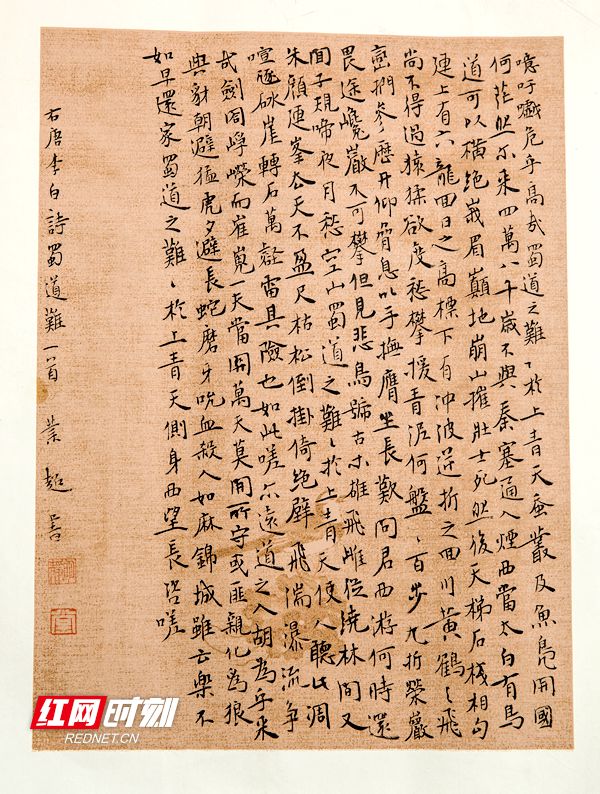 噫吁嚱危乎高哉蜀道之難〻於上青天蚕叢及魚鳧開國
何茫然尔来四萬八千歲不與秦塞通人煙西當太白有鳥
道可以橫絕峩眉巔地崩山摧壮士死然後天梯石棧相勾
連上有六龍回日之高標下有冲波逆折之回川黄鶴之飛
尚不得過猿猱欲度愁攀援青泥何盤〻百步九折縈巖
巒捫參歷井仰脅息以手撫膺坐長歎問君西游何時還
畏途巉巖不可攀但見悲鳥號古木雄飛雌從繞林間又
聞子規啼夜月愁空山蜀道之難〻於上青天使人聽此凋
朱顏連峯去天不盈尺枯松倒掛倚絕壁飛湍瀑流争
喧豗砯崖轉石萬壑雷其險也如此嗟尔遠道之人胡為乎来
哉劍閣崢嶸而崔嵬一夫當關萬夫莫開所守或匪親化為狼
與豺朝避猛虎夕避長蛇磨牙吮血殺人如麻錦城雖云樂不
如早還家蜀道之難〻於上青天側身西望長咨嗟
右唐李白詩蜀道難一首 業超書
红网时刻
REDNET.CN